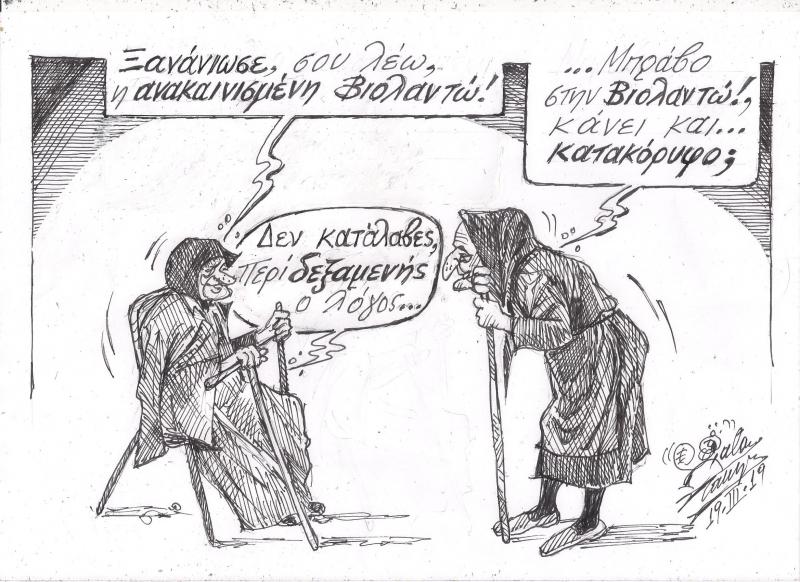 Ξανάνιωσε, σου λέω,
η ανακαινισμένη Βιολαντώ!
...Μπράβο
στην Βιολαντώ!,
κάνει και...
κατακόρυφο;
Δεν κατάλαβες,
Περί δεξαμενής
ο λόγος...
19.III.19